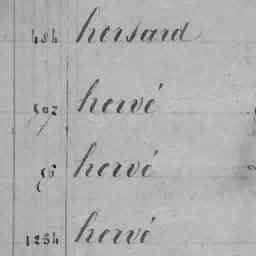 484 hersard
507 hervé
86 hervé
1254 hervé